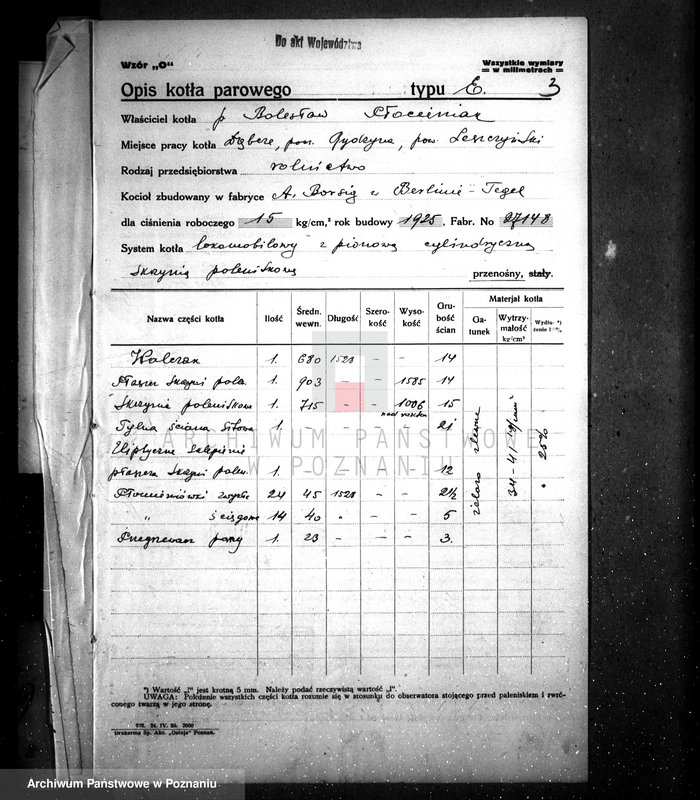 Do akt Województwa
Wzór „O"
Wszystkie wymiary
= w milimetrach =
Opis kotła parowego typu E. 3
Właściciel kotła p Bolesław
Miejsce pracy kotła pow. Leszczyński
Rodzaj przedsiębiorstwa rolnictwo
Kocioł zbudowany w fabryce A. Borsig w Berlinie-Tegel
dla ciśnienia roboczego 15 kg/cm,² rok budowy 1925. Fabr. No 27148
System kotła lokomobilowy z pionową cylindryczną
skrzynią paleniskową przenośny, stały.
Nazwa części kotła Ilość Średn. wewn. Długość Szerokość Wysokość Grubość ścian Materjał kotła
Gatunek Wytrzymałość kg/cm² Wydłu-*) żenie
Walczak 1. 680 1528 – – 14
Płaszcz skrzyni pale. 1. 903 – – 1585 14
Skrzynia paleniskowa 1. 715 – – 1006 15
nad rusztem
Tylna ściana sitowa 1. – – – – 21
Eliptyczne sklepienie
płaszcza skrzyni palen. 1. – – – – 12
Płomieniówki zwykłe 24 45 1528 – – 2½
„ ściągowe 14 40 „ – – 5
Przegrzewacz pary 1. 23 – – – 3.
żelazo zlewne
34-41
25%
*) Wartość „l" jest krotną 5 mm. Należy podać rzeczywistą wartość „l".
UWAGA: Położenie wszystkich części kotła rozumie się w stosunku do obserwatora stojącego przed paleniskiem i zwró-
conego twarzą w jego stronę.
Drukarnia Sp. Akc. „Ostoja" Poznań.
ARCHIWUM PAŃSTWOWE
W POZNANIU
Archiwum Państwowe w Poznaniu